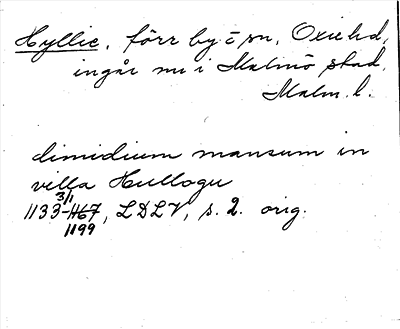 Hyllie, förr by o sn, Oxie hd,
ingår nu i Malmö stad.
Malm. l.
dimidium mansum in
villa Hullogu
3/1
1133-1167, LDLV, s. 2. orig.
1199